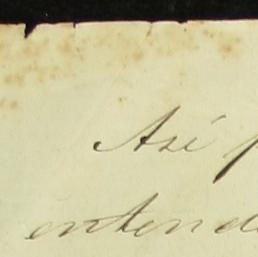 Así
entend